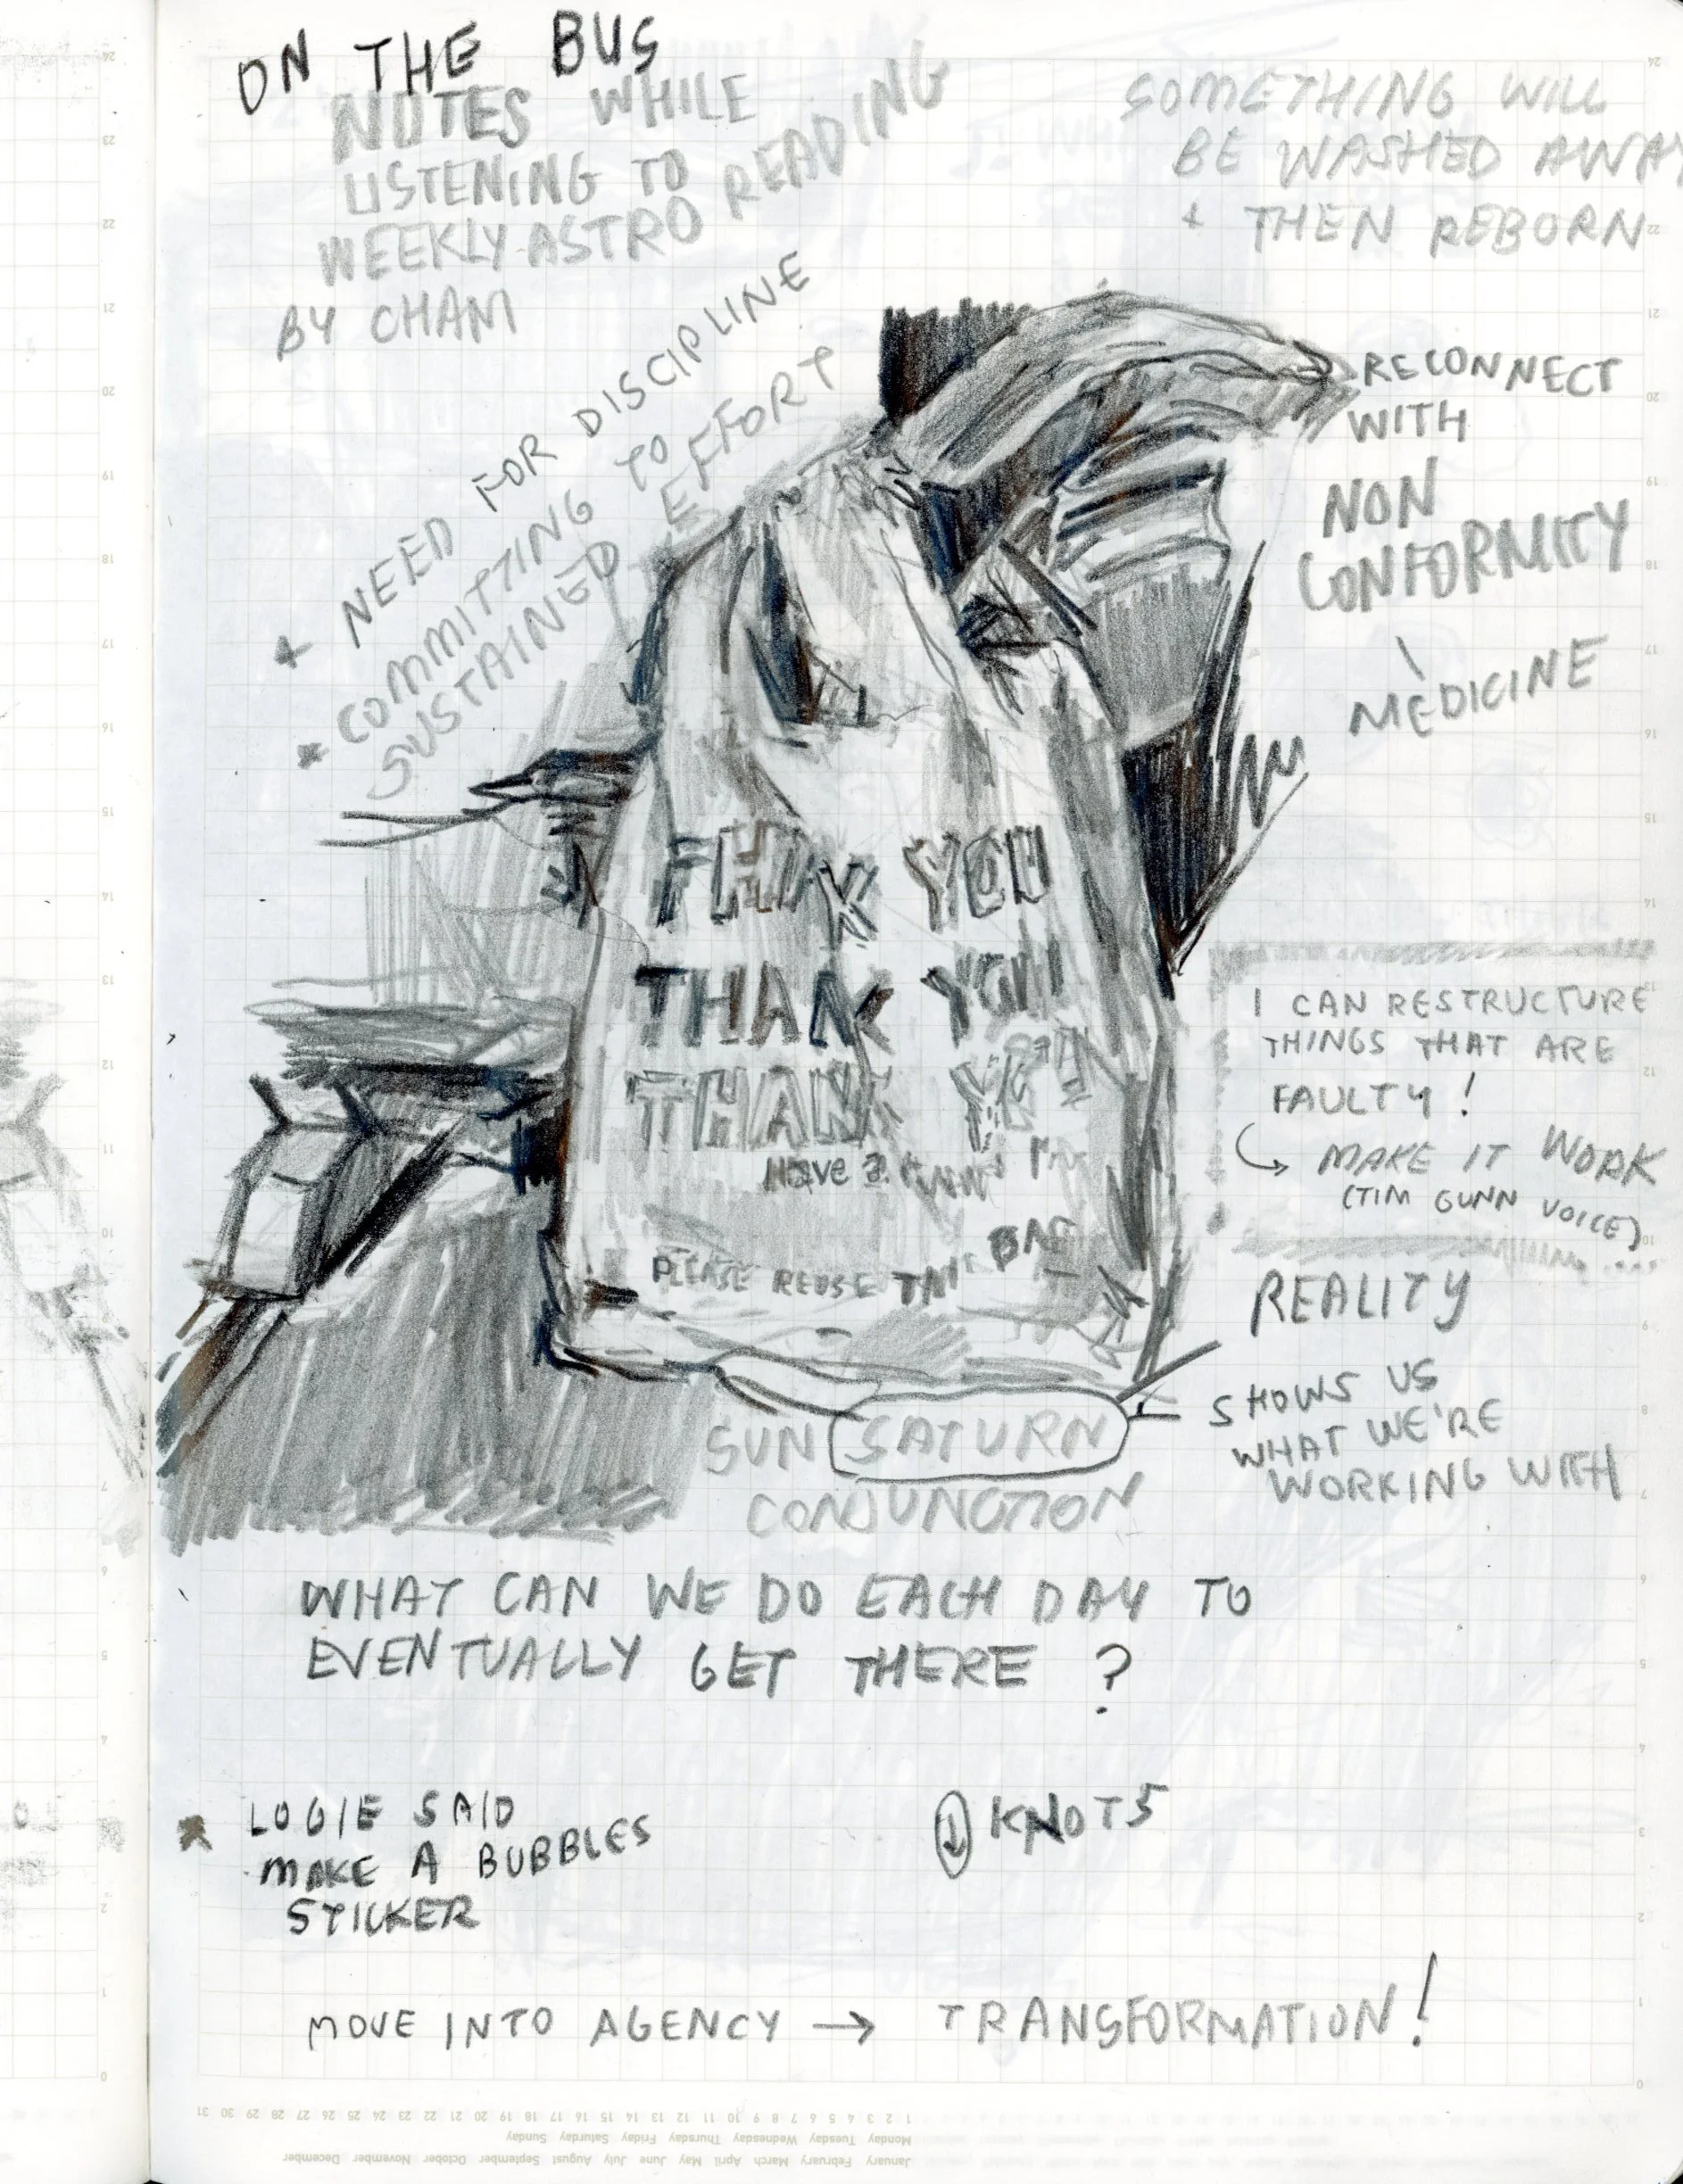 ON THE BUS
NOTES WHILE
LISTENING TO
WEEKLY ASTRO READING
BY CHAM
SOMETHING WILL
BE WASHED AWAY
+ THEN REBORN
+ NEED FOR DISCIPLINE
* COMMITTING TO
SUSTAINED EFFORT
RECONNECT
WITH
NON
CONFORMITY
\
MEDICINE
THANK YOU
THANK YOU
THANK YOU
Have a
PLEASE REUSE THIS BAG
I CAN RESTRUCTURE
THINGS THAT ARE
FAULTY!
MAKE IT WORK
(TIM GUNN VOICE)
REALITY
SHOWS US
WHAT WE'RE
WORKING WITH
SUN SATURN
CONJUNCTION
WHAT CAN WE DO EACH DAY TO
EVENTUALLY GET THERE ?
LOGIE SAID
MAKE A BUBBLES
STICKER
↓ KNOTS
MOVE INTO AGENCY → TRANSFORMATION!
24
23
22
21
20
19
18
17
16
15
14
13
12
11
10
9
8
7
6
5
4
3
2
1
0
1 2 3 4 5 6 7 8 9 10 11 12 13 14 15 16 17 18 19 20 21 22 23 24 25 26 27 28 29 30 31
Monday Tuesday Wednesday Thursday Friday Saturday Sunday
January February March April May June July August September October November December